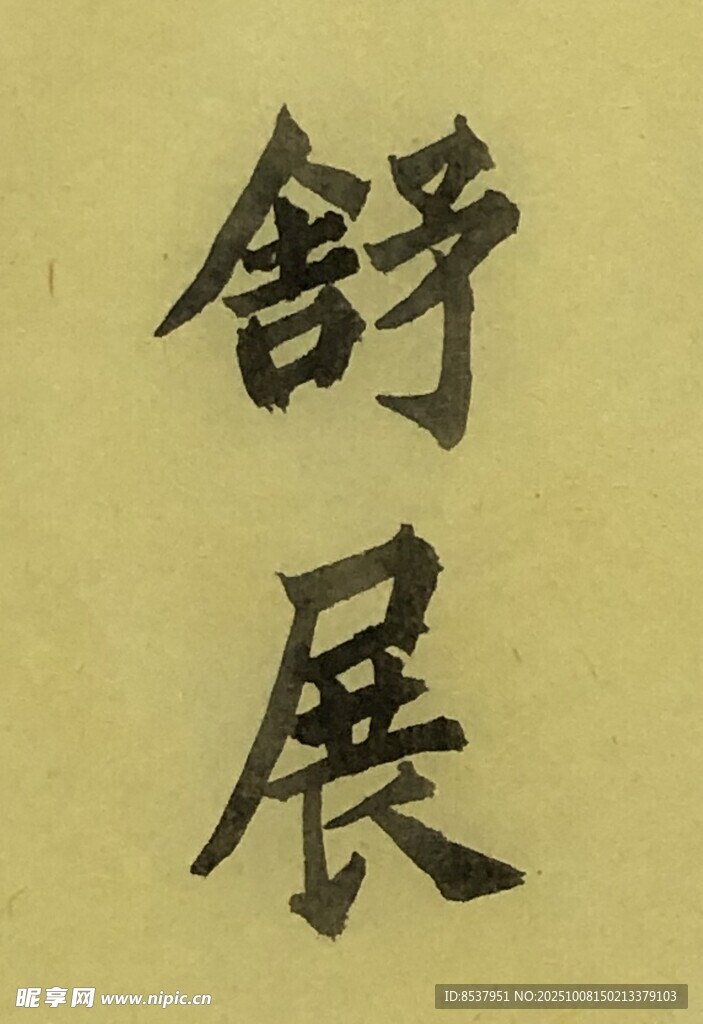 舒
展
昵享网 www.nipic.cn
ID:8537951 NO:20251008150213379103